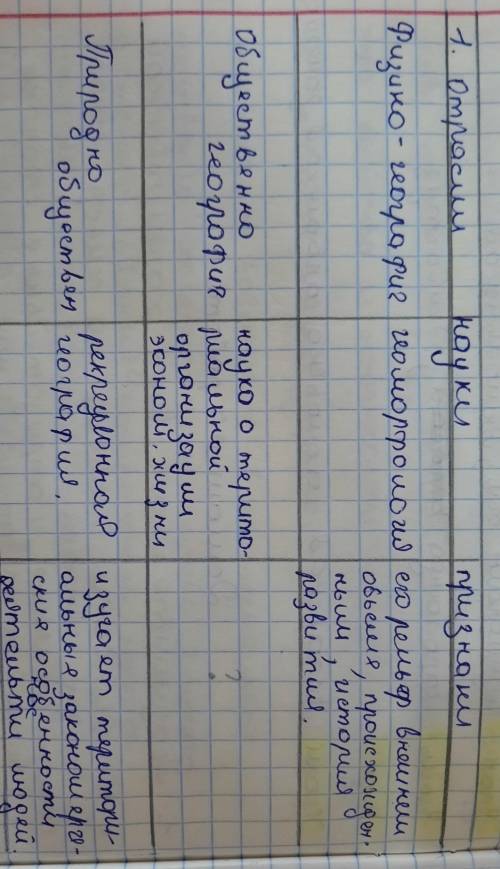 1. Отрасли
науки
признаки
Физико-географич
геоморфология
его рельф внешнем
объеме, происхожден.
ным, история
развития.
Общественно
география
наука о терито-
риальной
организаци
эконом, жизни
?
Природно
обществен
рекреционная
география,
изучает територи-
альные закономерно-
ския особенности
деятельти людей.